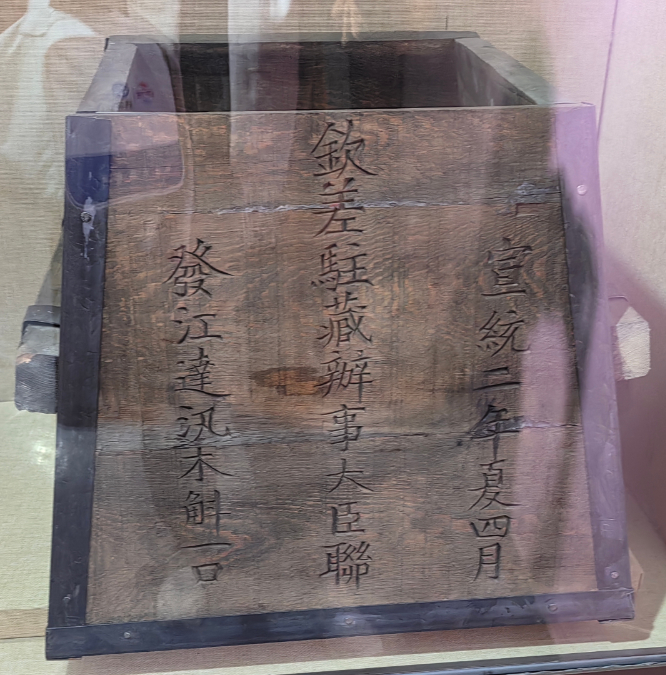 宣統二年夏四月
欽差駐藏辦事大臣聯
發江達汛木斛一口